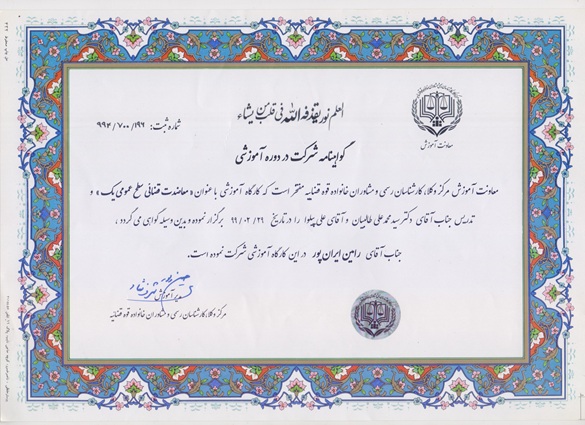 العلم نور یقذفه الله فی قلب من یشاء
معاونت آموزش
شماره ثبت: ۹۹۴/۷۰۰/۱۹۶
گواهینامه شرکت در دوره آموزشی
معاونت آموزش مرکز وکلا، کارشناسان رسمی و مشاوران خانواده قوه قضائیه مفتخر است که کارگاه آموزشی با عنوان « معاضدت قضائی سطح عمومی یک » و
تدریس جناب آقای دکتر سید محمد علی طالبیان و آقای علی پهلوا را در تاریخ ۹۹/۰۲/۲۹ برگزار نموده و بدین وسیله گواهی می گردد ،
جناب آقای رامین ایران پور در این کارگاه آموزشی شرکت نموده است.
مدیر آموزش
مرکز وکلا، کارشناسان رسمی و مشاوران خانواده قوه قضائیه